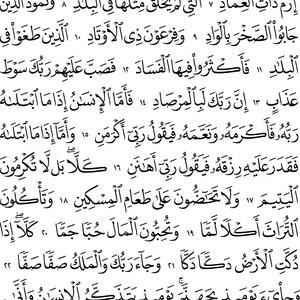 إِرَمَ ذَاتِ ٱلْعِمَادِ ٧ ٱلَّتِى لَمْ يُخْلَقْ مِثْلُهَا فِى ٱلْبِلَٰدِ ٨ وَثَمُودَ ٱلَّذِينَ
جَابُوا۟ ٱلصَّخْرَ بِٱلْوَادِ ٩ وَفِرْعَوْنَ ذِى ٱلْأَوْتَادِ ١٠ ٱلَّذِينَ طَغَوْا۟ فِى
ٱلْبِلَٰدِ ١١ فَأَكْثَرُوا۟ فِيهَا ٱلْفَسَادَ ١٢ فَصَبَّ عَلَيْهِمْ رَبُّكَ سَوْطَ
عَذَابٍ ١٣ إِنَّ رَبَّكَ لَبِٱلْمِرْصَادِ ١٤ فَأَمَّا ٱلْإِنسَٰنُ إِذَا مَا ٱبْتَلَىٰهُ
رَبُّهُۥ فَأَكْرَمَهُۥ وَنَعَّمَهُۥ فَيَقُولُ رَبِّىٓ أَكْرَمَنِ ١٥ وَأَمَّآ إِذَا مَا ٱبْتَلَىٰهُ
فَقَدَرَ عَلَيْهِ رِزْقَهُۥ فَيَقُولُ رَبِّىٓ أَهَٰنَنِ ١٦ كَلَّا ۖ بَل لَّا تُكْرِمُونَ
ٱلْيَتِيمَ ١٧ وَلَا تَحَٰٓضُّونَ عَلَىٰ طَعَامِ ٱلْمِسْكِينِ ١٨ وَتَأْكُلُونَ
ٱلتُّرَاثَ أَكْلًا لَّمًّا ١٩ وَتُحِبُّونَ ٱلْمَالَ حُبًّا جَمًّا ٢٠ كَلَّآ ۖ إِذَا
دُكَّتِ ٱلْأَرْضُ دَكًّا دَكًّا ٢١ وَجَآءَ رَبُّكَ وَٱلْمَلَكُ صَفًّا صَفًّا ٢٢
وَجِا۟ىٓءَ يَوْمَئِذٍۭ بِجَهَنَّمَ ۚ يَوْمَئِذٍ يَتَذَكَّرُ ٱلْإِنسَٰنُ وَأَنَّىٰ